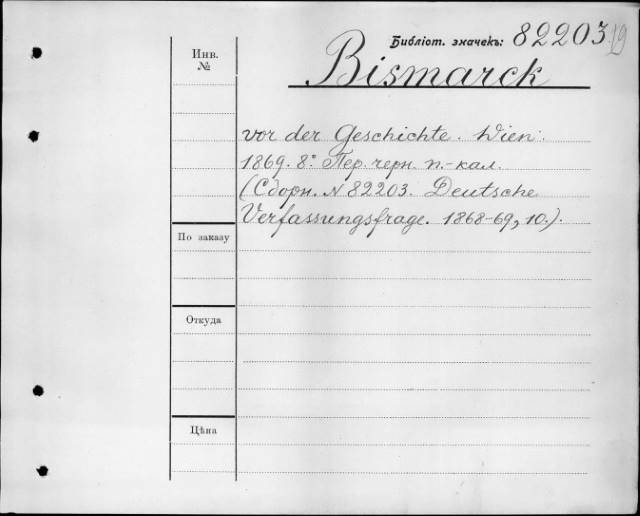 Библіот. значекъ: 82203 19
Bismarck
Инв.
№
vor der Geschichte. Wien.
1869. 8° Пер. черн. п.-кал.
(Сборн. N 82203. Deutsche
Verfassungsfrage. 1868-69, 10.).
По заказу
Откуда
Цѣна